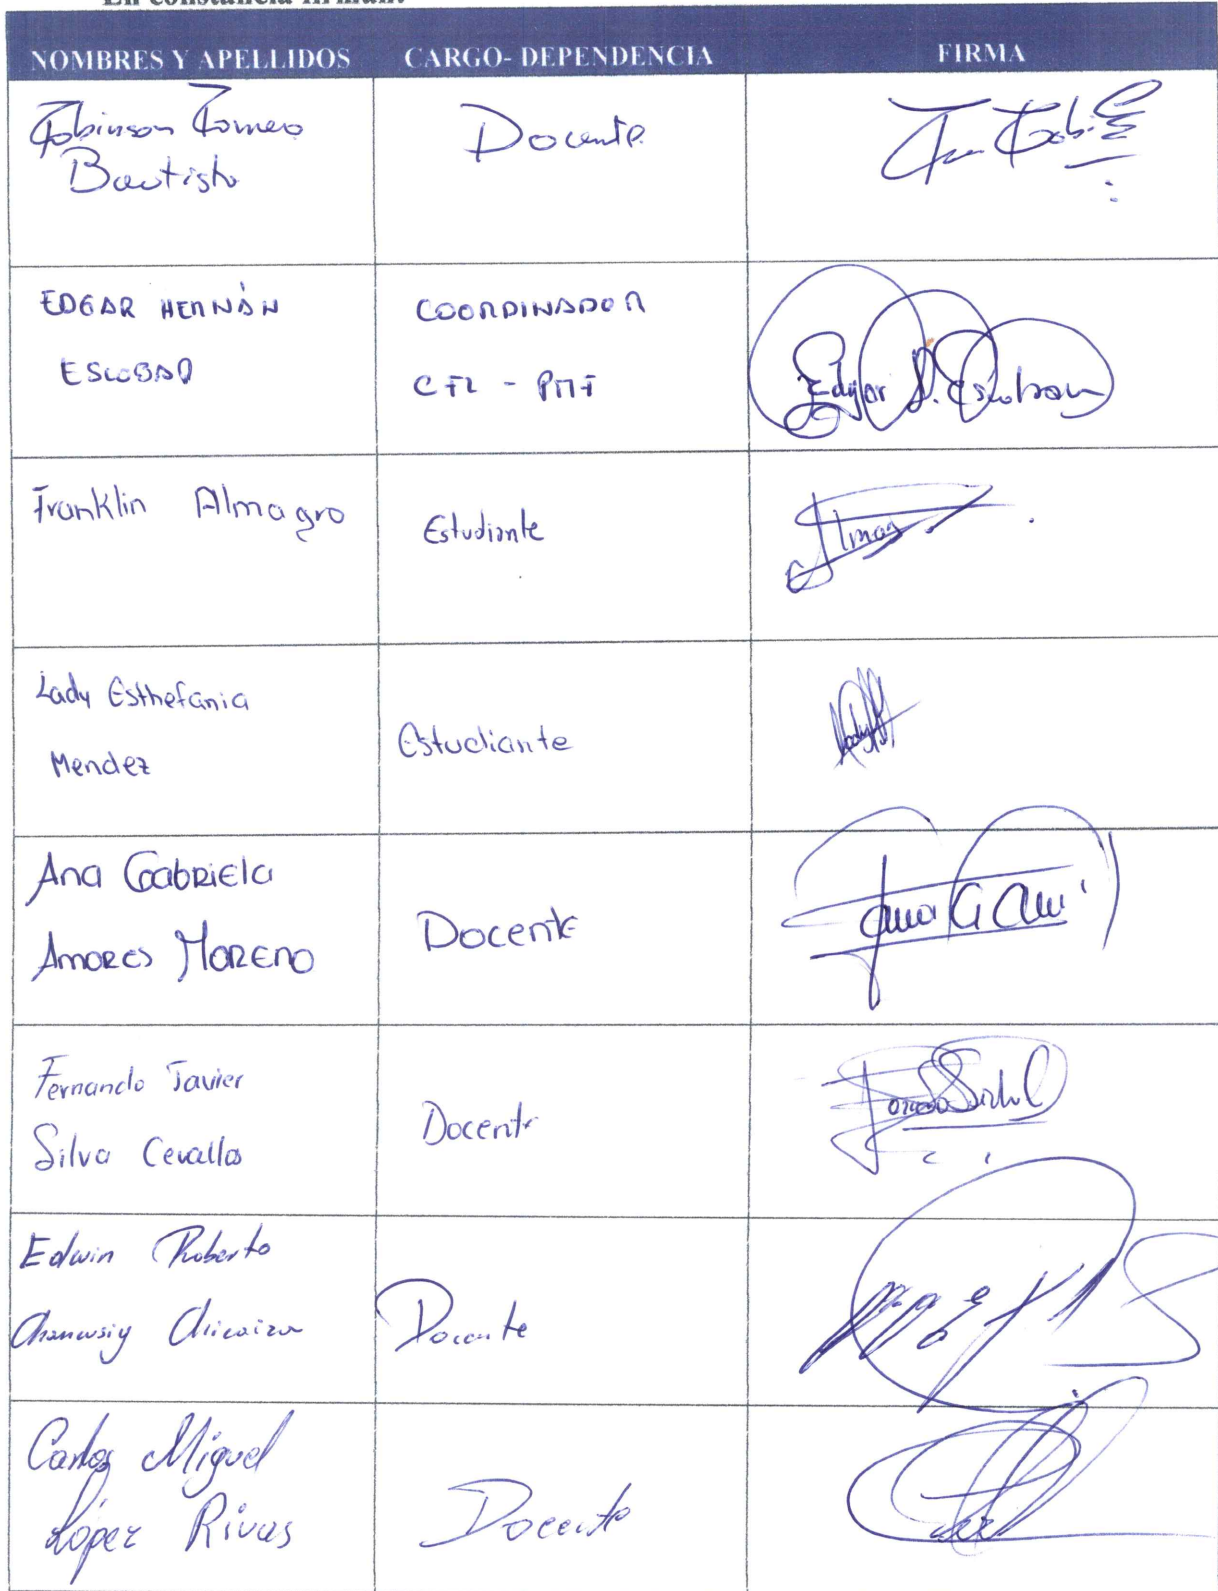 En constancia firman:
NOMBRES Y APELLIDOS CARGO- DEPENDENCIA FIRMA
Robinson Romero Docente
Bautista
EDGAR HERNÁN COORDINADOR
ESCOBAR CFL - PMF Edgar H. Escobar
Franklin Almagro Estudiante
Lady Esthefania
Mendez Estudiante
Ana Gabriela
Amores Moreno Docente
Fernando Javier
Silva Cevallos Docente
Edwin Roberto
Chanusig Chicaiza Docente
Carlos Miguel
López Rivas Docente